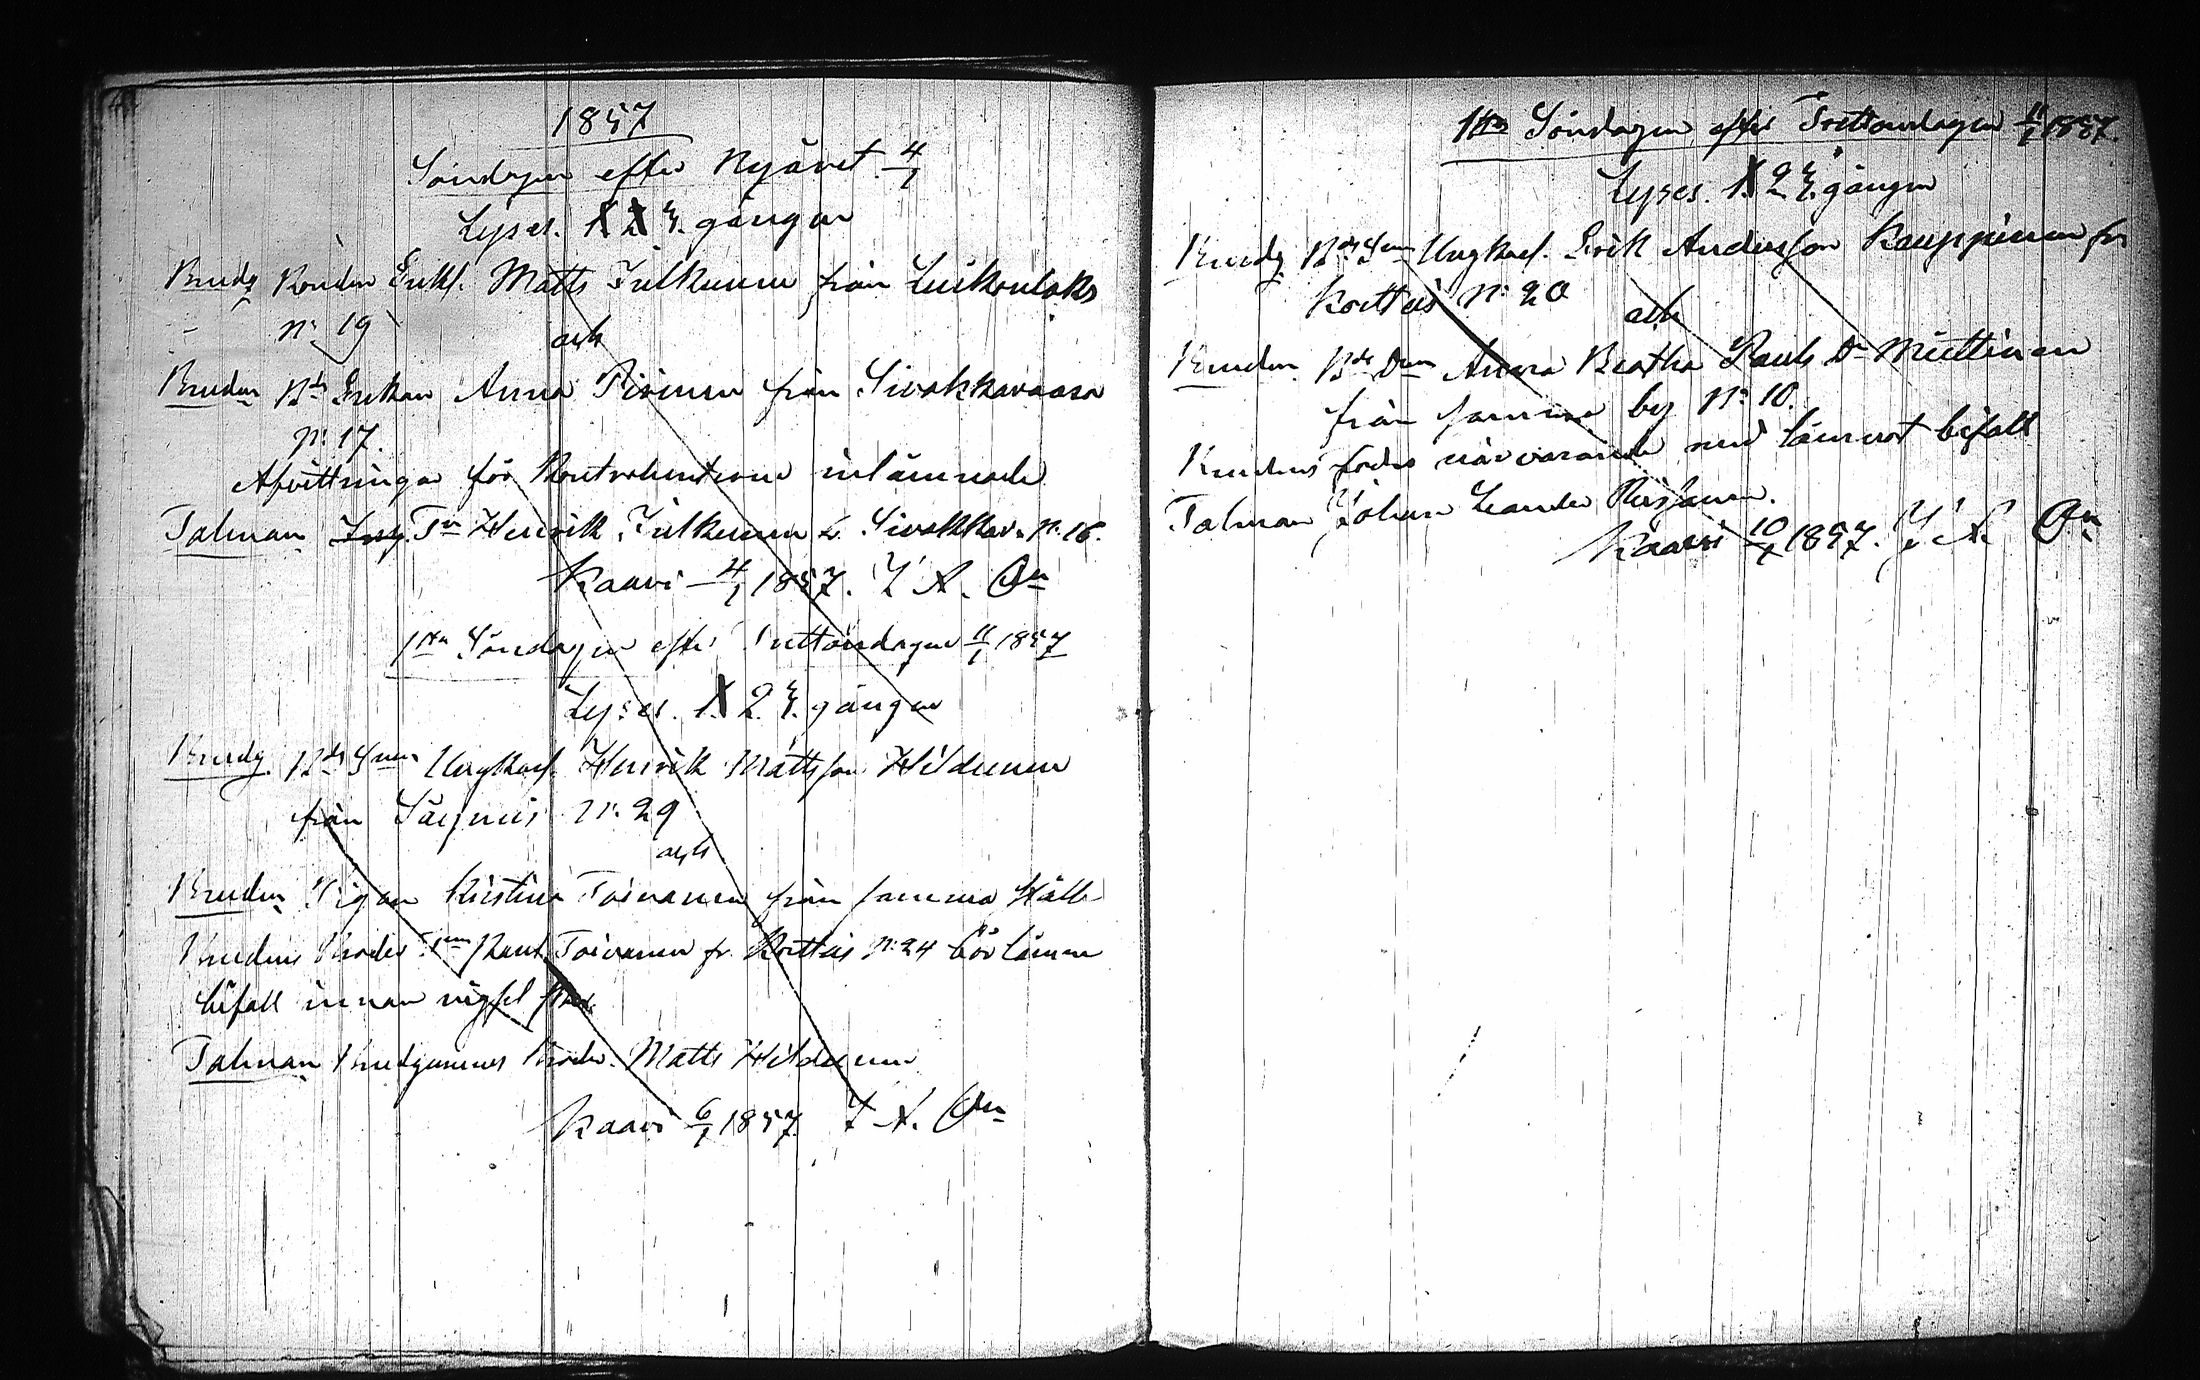 1857
Söndagen efter Nyåret 4/1
Lyses. 1. 2. 3. gången
Brudg Bonden Enkl. Matts Julkunen från Luikonlaks
N: 19
och
Bruden Bd Enkan Anna Pirinen från Sivakkavaara
N: 17.
Afvittringar för Kontrahenterne inlämnade
Talman Insp. Tn Henrik Julkunen fr. Sivakkav. N: 16.
Kaavi 4/1 1857. J A. On
1sta Söndagen efter Trettondagen 11/1 1857
Lyses. 1. 2. 3. gången
Brudg. Bds Sn Ungkarl. Henrik Mattsson Hildunen
från Säyneis N: 29
och
Bruden Pigan Kristina Toivanen från samma ställe
Brudens Broder Paul Toivanen fr. Kortteis N: 24 bör lämna
bifall innan vigsel sker.
Talman Brudgummes broder Matts Hildunen
Kaavi 6/1 1857 J A. On
1sta Söndagen efter Trettondagen 11/1 1857.
Lyses. 1. 2. 3. gången
Brudg Bds Sn Ungkarl. Erik Andersson Kauppinen fr
Kortteis N: 20
och
Bruden Bds Dn Anna Beatha Pauls Dr Miettinen
från samma by N: 10.
Brudens fader närvarande med lämnat bifall
Talman Johan Leander
Kaavi 10/1 1857. J A. On